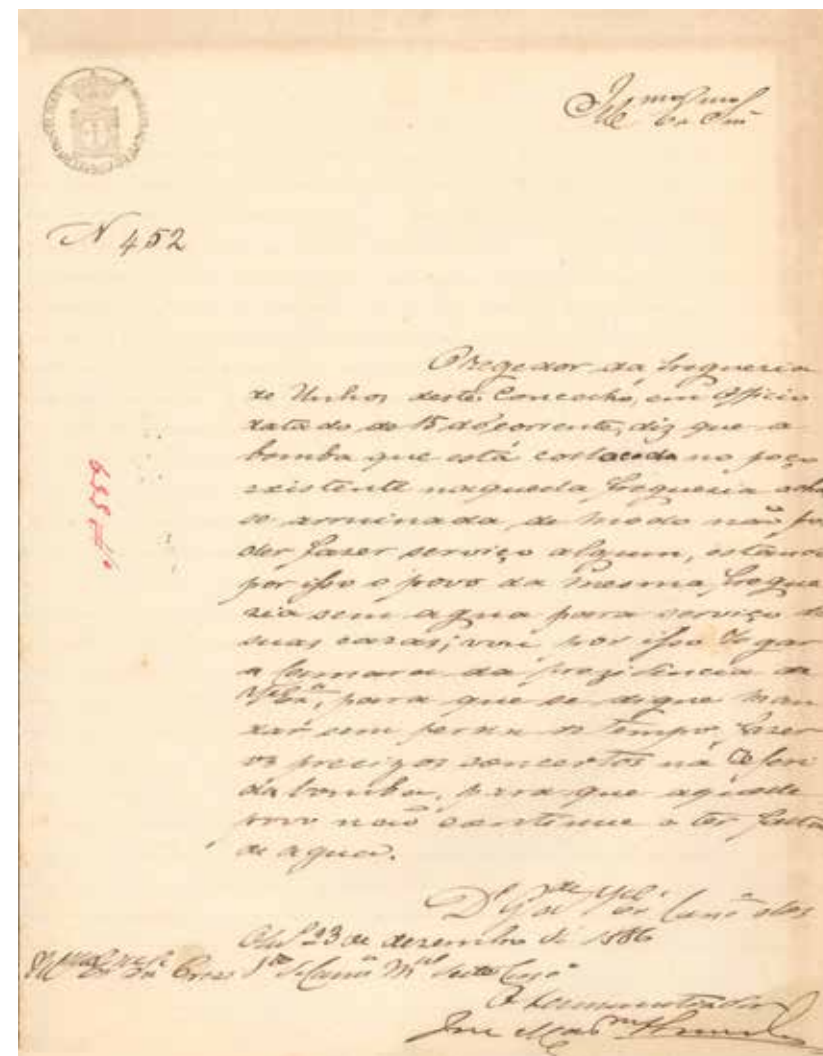 Ill.mo Ex.mo Snr.
N 452
O Regedor da freguezia
de Unhos deste Concelho, em officio
datado de 15 do corrente, diz que a
bomba que está collocada no poço
existente naquella freguezia acha
se arruinada de modo não po
der fazer serviço algum, estando
por isso o povo da mesma fregue
zia sem agua para serviço de
suas cazas; vou por isso rogar
a Camara da prezidencia de
V.Ex.ª, para que se digne man
dar sem perda de tempo, fazer
os precizos concertos na referi
da bomba, para que aquelle
povo não continue a ter falta
de agua.
6559
D.s G.de
23 de dezembro de 1886
O Administrador